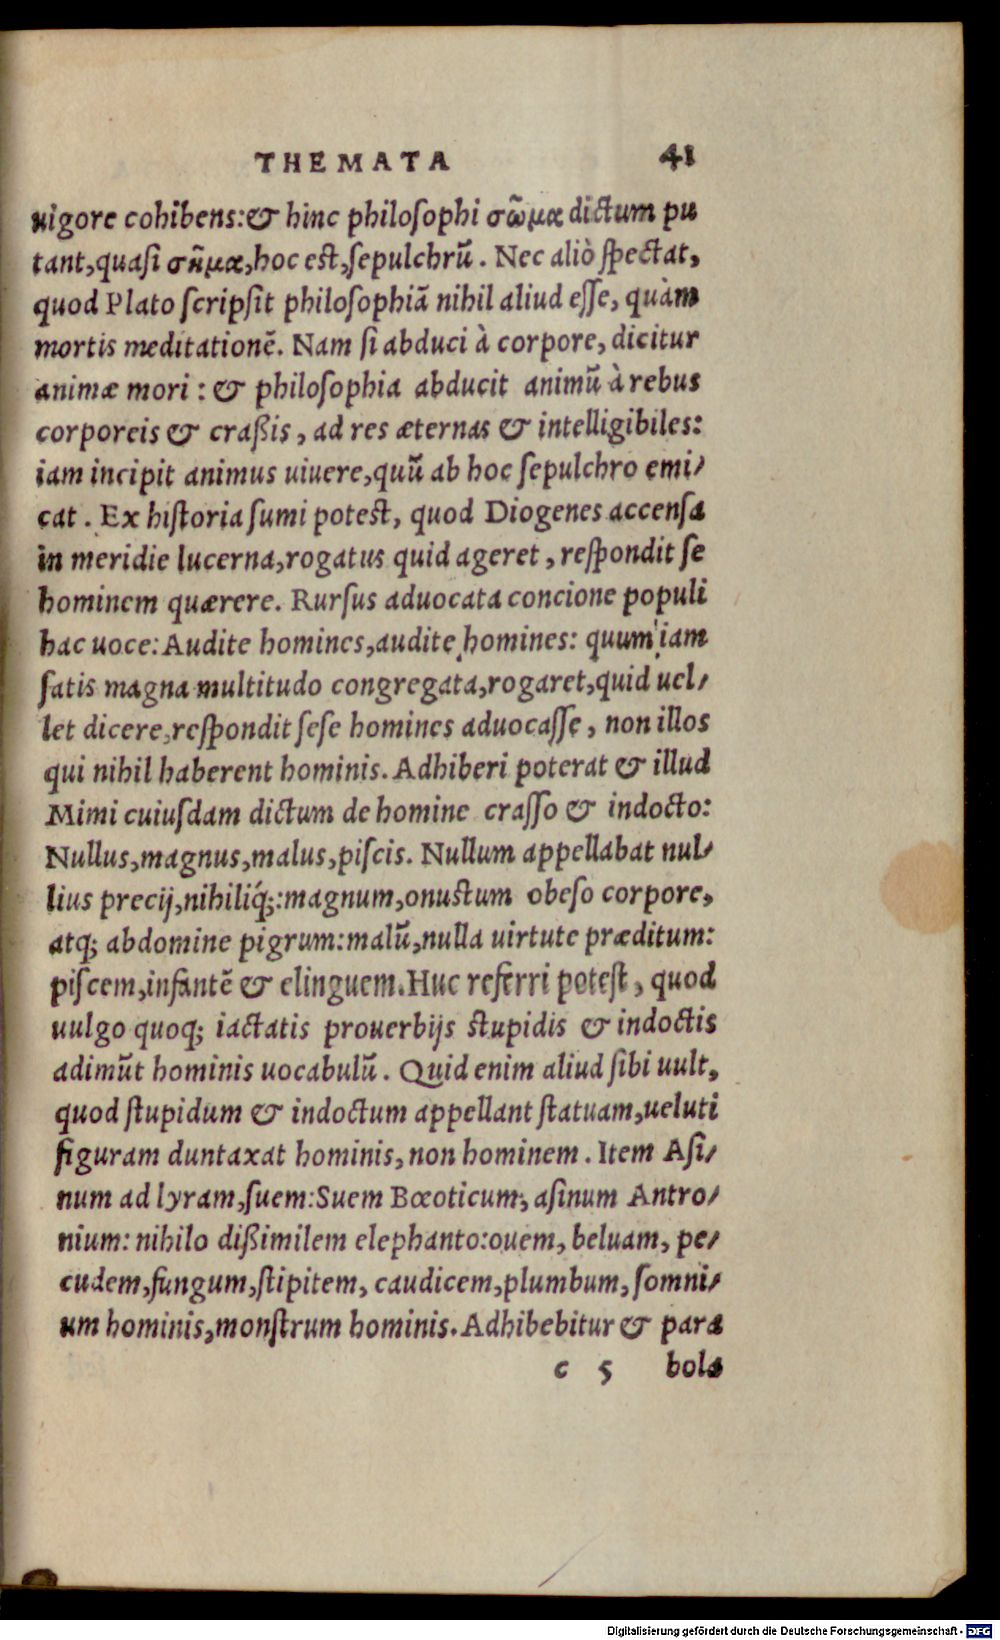 THEMATA 41
uigore cohibens: & hinc philoſophi σῶμα dictum pu
tant, quaſi σῆμα, hoc eſt, ſepulchrũ. Nec aliò ſpectat,
quod Plato ſcripſit philoſophiã nihil aliud eſſe, quàm
mortis meditationẽ. Nam ſi abduci à corpore, dicitur
animæ mori: & philoſophia abducit animũ à rebus
corporeis & craßis, ad res æternas & intelligibiles:
iam incipit animus uiuere, quũ ab hoc ſepulchro emi/
cat. Ex hiſtoria ſumi poteſt, quod Diogenes accenſa
in meridie lucerna, rogatus quid ageret, reſpondit ſe
hominem quærere. Rurſus aduocata concione populi
hac uoce: Audite homines, audite homines: quum iam
ſatis magna multitudo congregata, rogaret, quid uel/
let dicere, reſpondit ſeſe homines aduocaſſe, non illos
qui nihil haberent hominis. Adhiberi poterat & illud
Mimi cuiuſdam dictum de homine craſſo & indocto:
Nullus, magnus, malus, piſcis. Nullum appellabat nul/
lius precij, nihiliq́;: magnum, onuſtum obeſo corpore,
atq; abdomine pigrum: malũ, nulla uirtute præditum:
piſcem, infantẽ & elinguem. Huc referri poteſt, quod
uulgo quoq; iactatis prouerbijs ſtupidis & indoctis
adimũt hominis uocabulũ. Quid enim aliud ſibi uult,
quod ſtupidum & indoctum appellant ſtatuam, ueluti
figuram duntaxat hominis, non hominem. Item Aſi/
num ad lyram, ſuem: Suem Bœoticum, aſinum Antro/
nium: nihilo dißimilem elephanto: ouem, beluam, pe/
cudem, fungum, ſtipitem, caudicem, plumbum, ſomni/
um hominis, monſtrum hominis. Adhibebitur & para
c 5 bola
Digitalisierung gefördert durch die Deutsche Forschungsgemeinschaft - DFG